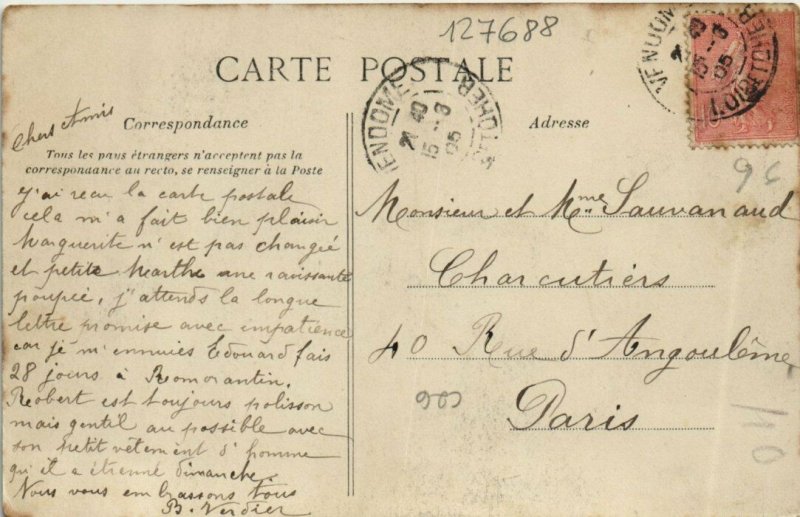 127688
CARTE POSTALE
VENDOME
21 40
15 - 3
05
LOIR-ET-CHER
VENDOME
21 40
15 - 3
05
LOIR-ET-CHER
Correspondance
Adresse
Tous les pays étrangers n'acceptent pas la
correspondance au recto, se renseigner à la Poste
Chers Amis
J'ai reçu la carte postale
cela m'a fait bien plaisir
Marguerite n'est pas changée
et petite Marthe une ravissante
poupée, j'attends la longue
lettre promise avec impatience
car je m'ennuies Edouard fais
28 jours à Romorantin.
Robert est toujours polisson
mais gentil au possible avec
son petit vêtement d'homme
qu'il a étrenné dimanche
Nous vous embrassons tous
B. Verdier
96
Monsieur et Mme Sauvanaud
Charcutiers
40 Rue d'Angoulême
Paris
40